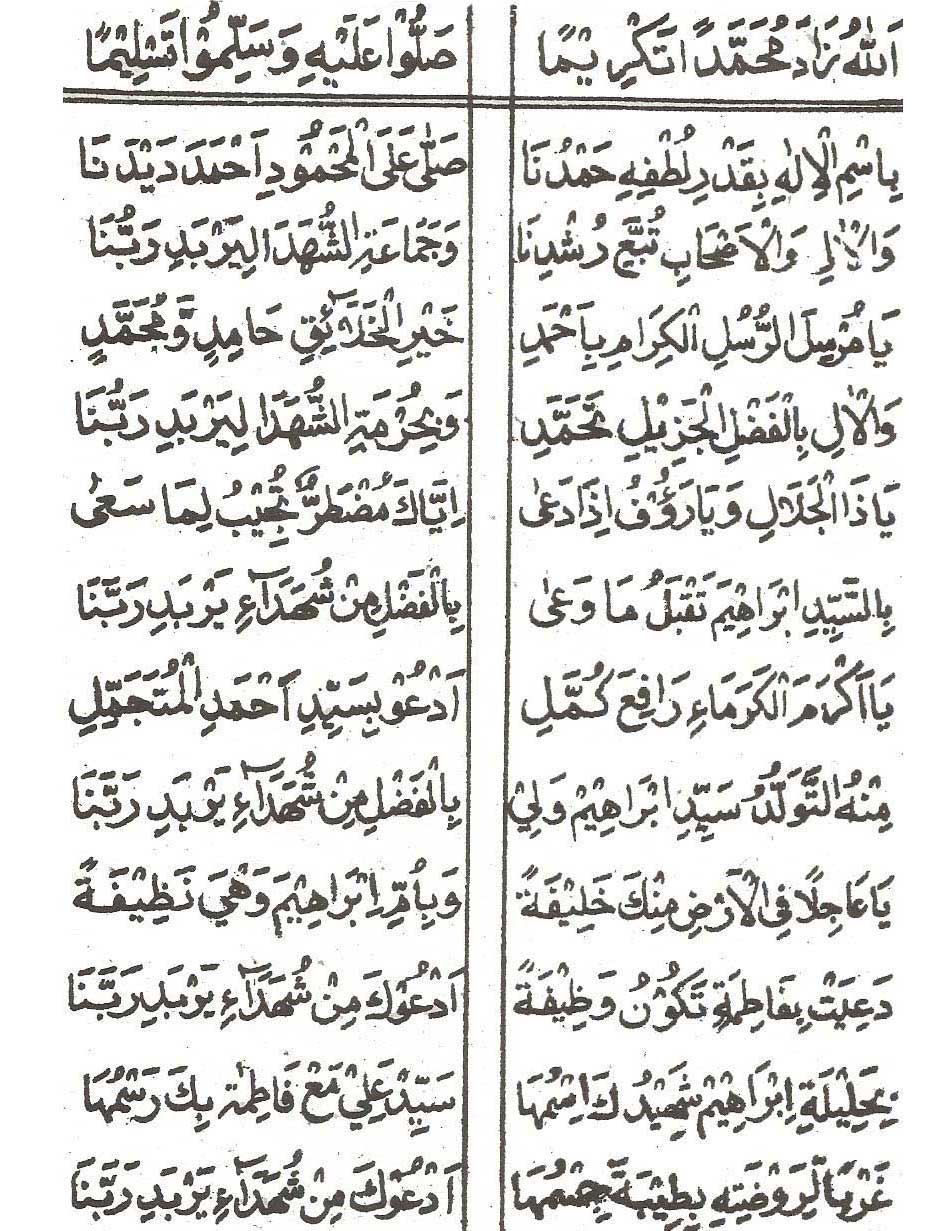 اَللهُ زَادَ مُحَمَّدًا تَكْرِيْمًا صَلُّوْا عَلَيْهِ وَسَلِّمُوْا تَسْلِيْمًا
بِاسْمِ الْاِلٰهِ بِقَدْرِ لُطْفِهِ حَمْدُنَا صَلّٰى عَلَى الْمَحْمُوْدِ اَحْمَدَ دَيْدَنَا
وَالْاٰلِ وَالْاَصْحَابِ تُبَّعِ رُشْدِنَا وَجَمَاعَةِ الشُّهَدَا لِيَرْبَدِ رَبَّنَا
يَا مُرْسِلَ الرُّسُلِ الْكِرَامِ بِاَحْمَدِ خَيْرِ الْخَلَآئِقِ حَامِدٍ وَّمُحَمَّدٍ
وَالْاٰلِ بِالْفَضْلِ الْجَزِيْلِ تَحَمَّدِ وَبِحُرْمَةِ الشُّهَدَا لِيَرْبَدِ رَبَّنَا
يَاذَا الْجَلَالِ وَيَا رَؤُفُ اِذَا دَعٰى اِيَّاكَ مُضْطَرٌّ تُجِيْبُ لِمَا سَعٰى
بِالسَّيِّدِ ابْرَاهِيْمَ تَقْبَلُ مَا وَعٰى بِالْفَضْلِ مِنْ شُهَدَآءِ يَرْبَدِ رَبَّنَا
يَا اَكْرَمَ الْكَرَمَاءِ رَافِعَ كُمَّلِ اَدْعُوْ بِسَيِّدِ اَحْمَدِ الْمُتَجَمِّلِ
مِنْهُ التَّوَلُّدُ سَيِّدِ ابْرَاهِيْمْ وَلِيْ بِالْفَضْلِ مِنْ شُهَدَآءِ يَرْبَدِ رَبَّنَا
يَا جَاعِلًا فِي الْاَرْضِ مِنْكَ خَلِيْفَةً وَبِاُمِّ اِبْرَاهِيْمَ وَهْيَ نَظِيْفَةً
دَعِيَتْ بِفَاطِمَةٍ تَكُوْنُ وَظِيْفَةً اَدْعُوْكَ مِنْ شُهَدَآءِ يَرْبَدِ رَبَّنَا
بِحَلِيْلَةِ اِبْرَاهِيْمْ شَهِيْدُكَ اسْمُهَا سَيِّدْ عَلِيْ مَعْ فَاطِمَة بِكَ رَسْمُهَا
لَرَوْضَتِهِ بِطَيْبَةَ جِسْمُهَا اَدْعُوْكَ مِنْ شُهَدَآءِ يَرْبَدِ رَبَّنَا